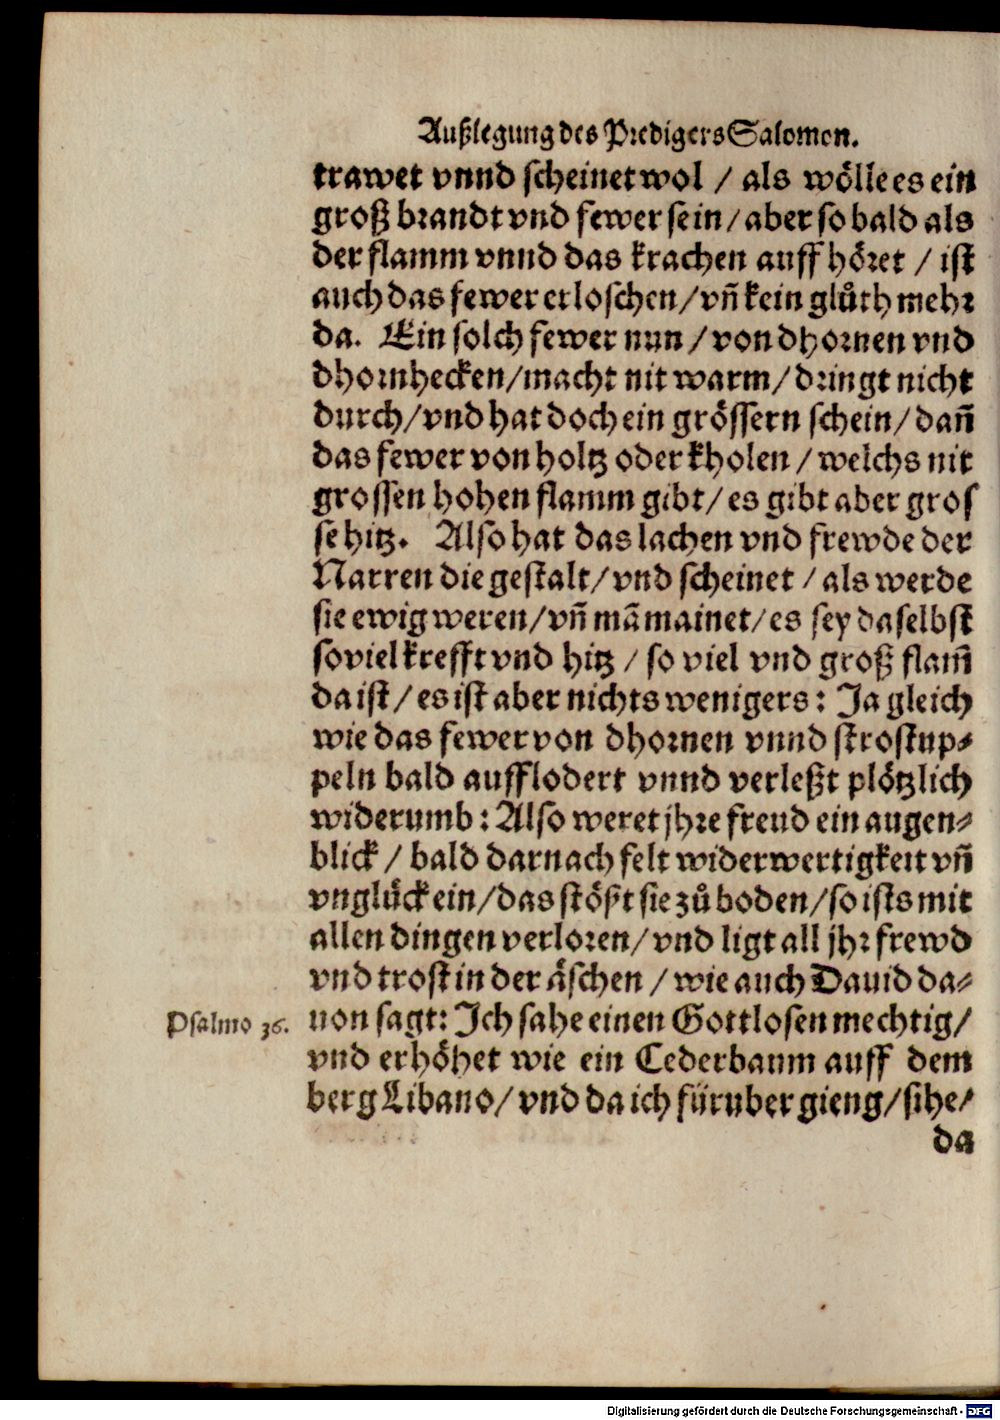 Außlegung des Predigers Salomon.
trawet vnnd scheinet wol / als wölle es ein
groß brandt vnd fewer sein / aber so bald als
der flamm vnnd das krachen auff höret / ist
auch das fewer erloschen / vñ kein glůth mehr
da. Ein solch fewer nun / von dhornen vnd
dhornhecken / macht nit warm / dringt nicht
durch / vnd hat doch ein grössern schein / dañ
das fewer von holtz oder kholen / welchs nit
grossen hohen flamm gibt / es gibt aber gros
se hitz. Also hat das lachen vnd frewde der
Narren die gestalt / vnd scheinet / als werde
sie ewig weren / vñ mã mainet / es sey daselbst
so viel krefft vnd hitz / so viel vnd groß flam̃
da ist / es ist aber nichts wenigers : Ja gleich
wie das fewer von dhornen vnnd strostup⸗
peln bald aufflodert vnnd verleßt plötzlich
widerumb : Also weret jhre freud ein augen⸗
blick / bald darnach felt widerwertigkeit vñ
vnglück ein / das stößt sie zů boden / so ists mit
allen dingen verloren / vnd ligt all jhr frewd
vnd trost in der äschen / wie auch Dauid da⸗
Psalmo 36. uon sagt : Ich sahe einen Gottlosen mechtig /
vnd erhöhet wie ein Cederbaum auff dem
berg Libano / vnd da ich fürüber gieng / sihe /
da
Digitalisierung gefördert durch die Deutsche Forschungsgemeinschaft - DFG